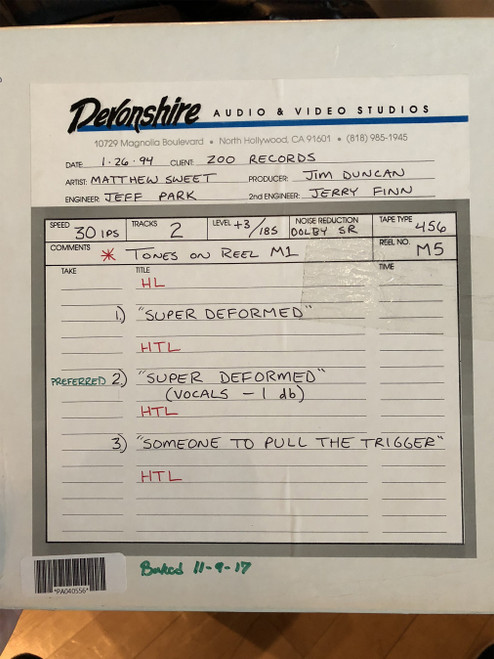 Devonshire AUDIO & VIDEO STUDIOS
10729 Magnolia Boulevard • North Hollywood, CA 91601 • (818) 985-1945
DATE 1·26·94 CLIENT: ZOO RECORDS
ARTIST: MATTHEW SWEET PRODUCER: JIM DUNCAN
ENGINEER: JEFF PARK 2nd ENGINEER: JERRY FINN
SPEED 30 IPS TRACKS 2 LEVEL +3/185 NOISE REDUCTION DOLBY SR TAPE TYPE 456
COMMENTS * TONES ON REEL M1 REEL NO. M5
TAKE TITLE TIME
HL
1) "SUPER DEFORMED"
HTL
PREFERRED 2) "SUPER DEFORMED"
(VOCALS - 1 db)
HTL
3) "SOMEONE TO PULL THE TRIGGER"
HTL
Baked 11-9-17
*PA040556*